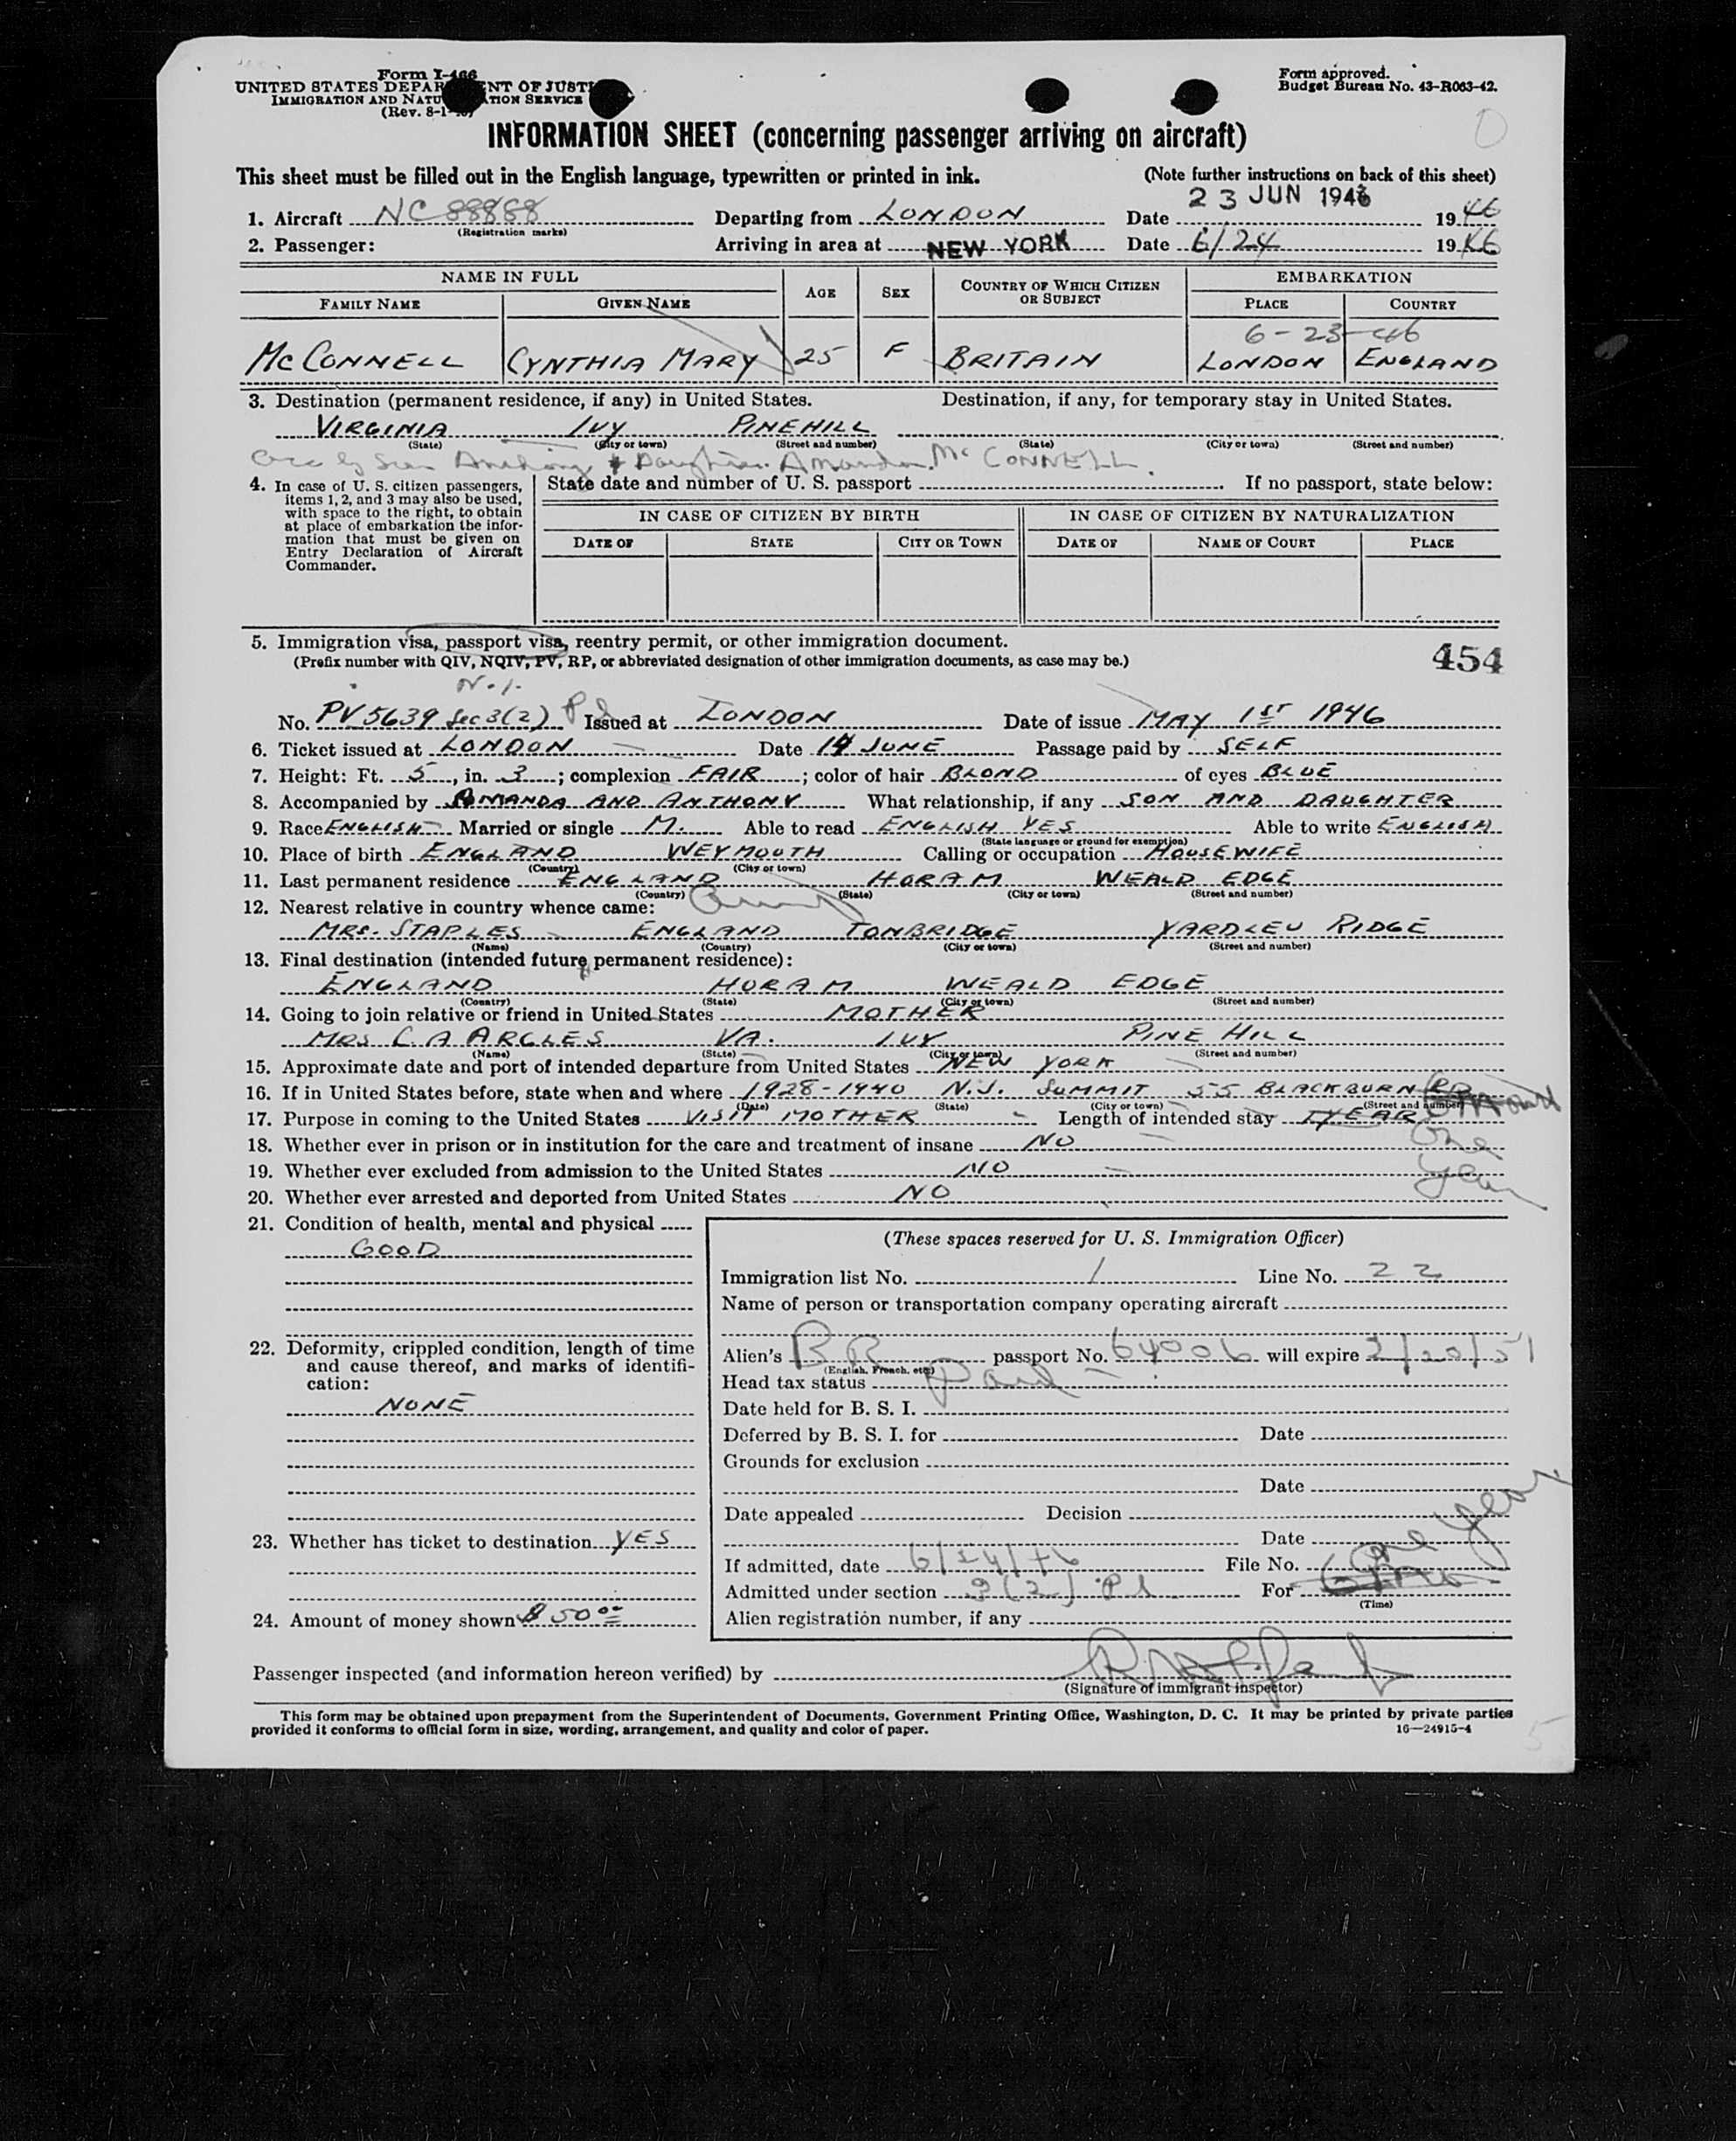 Form I-466
UNITED STATES DEPAR NT OF JUSTI
IMMIGRATION AND NATU TION SERVICE
(Rev. 8-1-
Form approved.
Budget Bureau No. 43-R063-42.
INFORMATION SHEET (concerning passenger arriving on aircraft)
This sheet must be filled out in the English language, typewritten or printed in ink. (Note further instructions on back of this sheet)
23 JUN 1946
1. Aircraft NC 88868 Departing from LONDON Date 1946
(Registration marks)
2. Passenger: Arriving in area at NEW YORK Date 6/24 1946
NAME IN FULL AGE SEX COUNTRY OF WHICH CITIZEN OR SUBJECT EMBARKATION
FAMILY NAME GIVEN NAME PLACE COUNTRY
6-23-46
MCCONNELL CYNTHIA MARY 25 F BRITAIN LONDON ENGLAND
3. Destination (permanent residence, if any) in United States. Destination, if any, for temporary stay in United States.
VIRGINIA IVY PINEHILL
(State) (City or town) (Street and number) (State) (City or town) (Street and number)
Acc by Son Anthony & Daughter Amanda McCONNELL.
4. In case of U. S. citizen passengers, items 1, 2, and 3 may also be used, with space to the right, to obtain at place of embarkation the information that must be given on Entry Declaration of Aircraft Commander.
State date and number of U. S. passport . If no passport, state below:
IN CASE OF CITIZEN BY BIRTH IN CASE OF CITIZEN BY NATURALIZATION
DATE OF STATE CITY OR TOWN DATE OF NAME OF COURT PLACE
5. Immigration visa, passport visa, reentry permit, or other immigration document.
(Prefix number with QIV, NQIV, PV, RP, or abbreviated designation of other immigration documents, as case may be.)
454
No. PV 5639 Sec 3(2) Issued at LONDON Date of issue MAY 1ST 1946
6. Ticket issued at LONDON Date 14 JUNE Passage paid by SELF
7. Height: Ft. 5, in. 3; complexion FAIR; color of hair BLOND of eyes BLUE
8. Accompanied by AMANDA AND ANTHONY What relationship, if any SON AND DAUGHTER
9. Race ENGLISH Married or single M. Able to read ENGLISH YES Able to write ENGLISH
(State language or ground for exemption)
10. Place of birth ENGLAND WEYMOUTH Calling or occupation HOUSEWIFE
(Country) (City or town)
11. Last permanent residence ENGLAND HORAM WEALD EDGE
(Country) (State) (City or town) (Street and number)
12. Nearest relative in country whence came:
MRS. STAPLES ENGLAND TONBRIDGE YARDLEY RIDGE
(Name) (Country) (City or town) (Street and number)
13. Final destination (intended future permanent residence):
ENGLAND HORAM WEALD EDGE
(Country) (State) (City or town) (Street and number)
14. Going to join relative or friend in United States MOTHER
MRS C. A ARGLES VA. IVY PINE HILL
(Name) (State) (City or town) (Street and number)
15. Approximate date and port of intended departure from United States NEW YORK
16. If in United States before, state when and where 1928-1940 N.J. SUMMIT 55 BLACKBURN RD
(Date) (State) (City or town) (Street and number)
17. Purpose in coming to the United States VISIT MOTHER Length of intended stay 1 YEAR
One
Year
18. Whether ever in prison or in institution for the care and treatment of insane NO
19. Whether ever excluded from admission to the United States NO
20. Whether ever arrested and deported from United States NO
21. Condition of health, mental and physical
GOOD
22. Deformity, crippled condition, length of time and cause thereof, and marks of identification:
NONE
23. Whether has ticket to destination YES
24. Amount of money shown $ 50 00
(These spaces reserved for U. S. Immigration Officer)
Immigration list No. 1 Line No. 22
Name of person or transportation company operating aircraft
Alien's BR passport No. 64006 will expire 2/20/51
(English, French, etc.)
Head tax status Paid
Date held for B. S. I.
Deferred by B. S. I. for Date
Grounds for exclusion
Date
Date appealed Decision
Date
If admitted, date 6/24/46 File No.
Admitted under section 3(2) P1 For One Year
(Time)
Alien registration number, if any
Passenger inspected (and information hereon verified) by
(Signature of immigrant inspector)
This form may be obtained upon prepayment from the Superintendent of Documents, Government Printing Office, Washington, D. C. It may be printed by private parties
provided it conforms to official form in size, wording, arrangement, and quality and color of paper. 16—24915-4